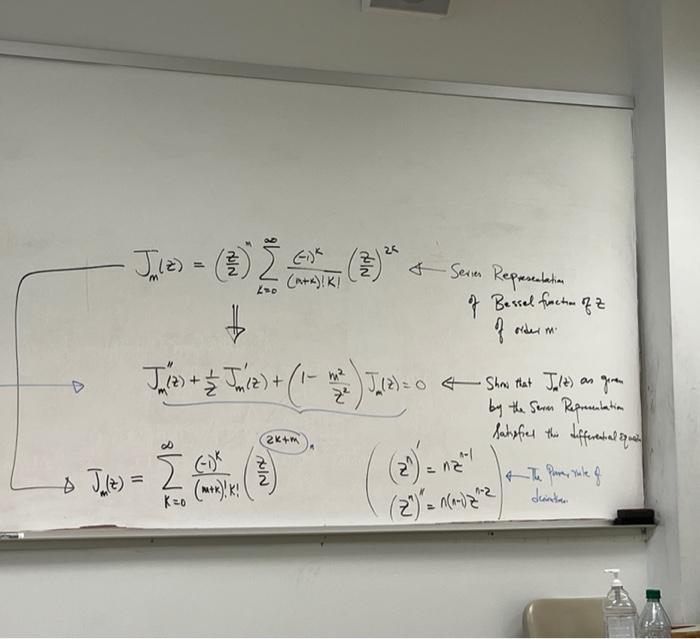 J_m(z) = (z/2)^m ∑_{k=0}^{∞} (-1)^k/((m+k)! k!) (z/2)^{2k} ← Series Representation
of Bessel function of z
of order m.
⇓
J_m''(z) + 1/z J_m'(z) + (1 - m²/z²) J_m(z) = 0 ← Show that J_m(z) as given
by the Series Representation
satisfies this differential equation
J_m(z) = ∑_{k=0}^{∞} (-1)^k/((m+k)! k!) (z/2)^{2k+m}
(z^n)' = nz^{n-1} ← The Power rule of
(z^n)'' = n(n-1)z^{n-2} derivation